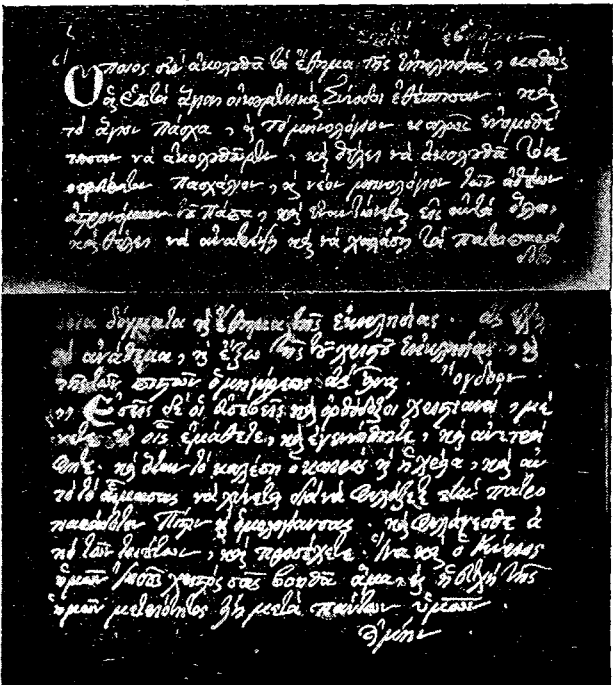 Ὅποιος δὲν ἀκολουθᾶ τὰ ἔθημα τῆς ἐκκλησίας, καθὼς
ᾑ Ἑπτὰ ἅγιαι οἰκουμενικαὶ Σύνοδοι ἐθέσπισαν. καὶ
τὸ ἅγιον Πάσχα, καὶ τὸ μηνολόγιον καλῶς ἐνομοθέ
τησαν νὰ ἀκολουθῶμεν, καὶ θέλει νὰ ἀκολουθᾶ τὸ νε
Πασχάλιον, καὶ νέον μηνολόγιον τῶν ἀθέων
ἀστρονόμων τοῦ Πάπα, καὶ ἐναντιώνεται εἰς αὐτὰ ὅλα,
καὶ θέλει νὰ ἀνατρέψῃ καὶ νὰ χαλάσῃ τὰ πατροπαρά
δο
δόγματα καὶ ἔθημα τῆς ἐκκλησίας. ἂς ἔχῃ
τὸ ἀνάθεμα, καὶ ἔξω τῆς τοῦ Χριστοῦ Ἐκκλησίας, καὶ
τῆς τῶν πιστῶν ὁμηγύρεως ἂς ἦναι. Ὄγδοον
η Ἐσεῖς δὲ οἱ εὐσεβεῖς καὶ ὀρθόδοξοι χριστιανοὶ, μέ
νετε ἐν οἷς ἐμάθετε, καὶ ἐγεννήθητε, καὶ ἀνετρά
φητε. καὶ ὅταν τὸ καλέσῃ ὁ καιρὸς καὶ ἡ χρεία, καὶ αὐ
τὸ τὸ αἷμα σας νὰ χύνετε διὰ νὰ φυλάξετε τὴν πατρο
παράδοτον Πίστιν καὶ ὁμολογίαν σας. καὶ φυλάγεσθε ἀ
πὸ τῶν τοιούτων, καὶ προσέχετε. ἵνα καὶ ὁ Κύριος
ἡμῶν Ἰησοῦς Χριστὸς σᾶς βοηθᾶ ἅμα, καὶ ἡ εὐχὴ τῆς
ἡμῶν μετριότητος εἴη μετὰ πάντων ὑμῶν.
Ἀμήν